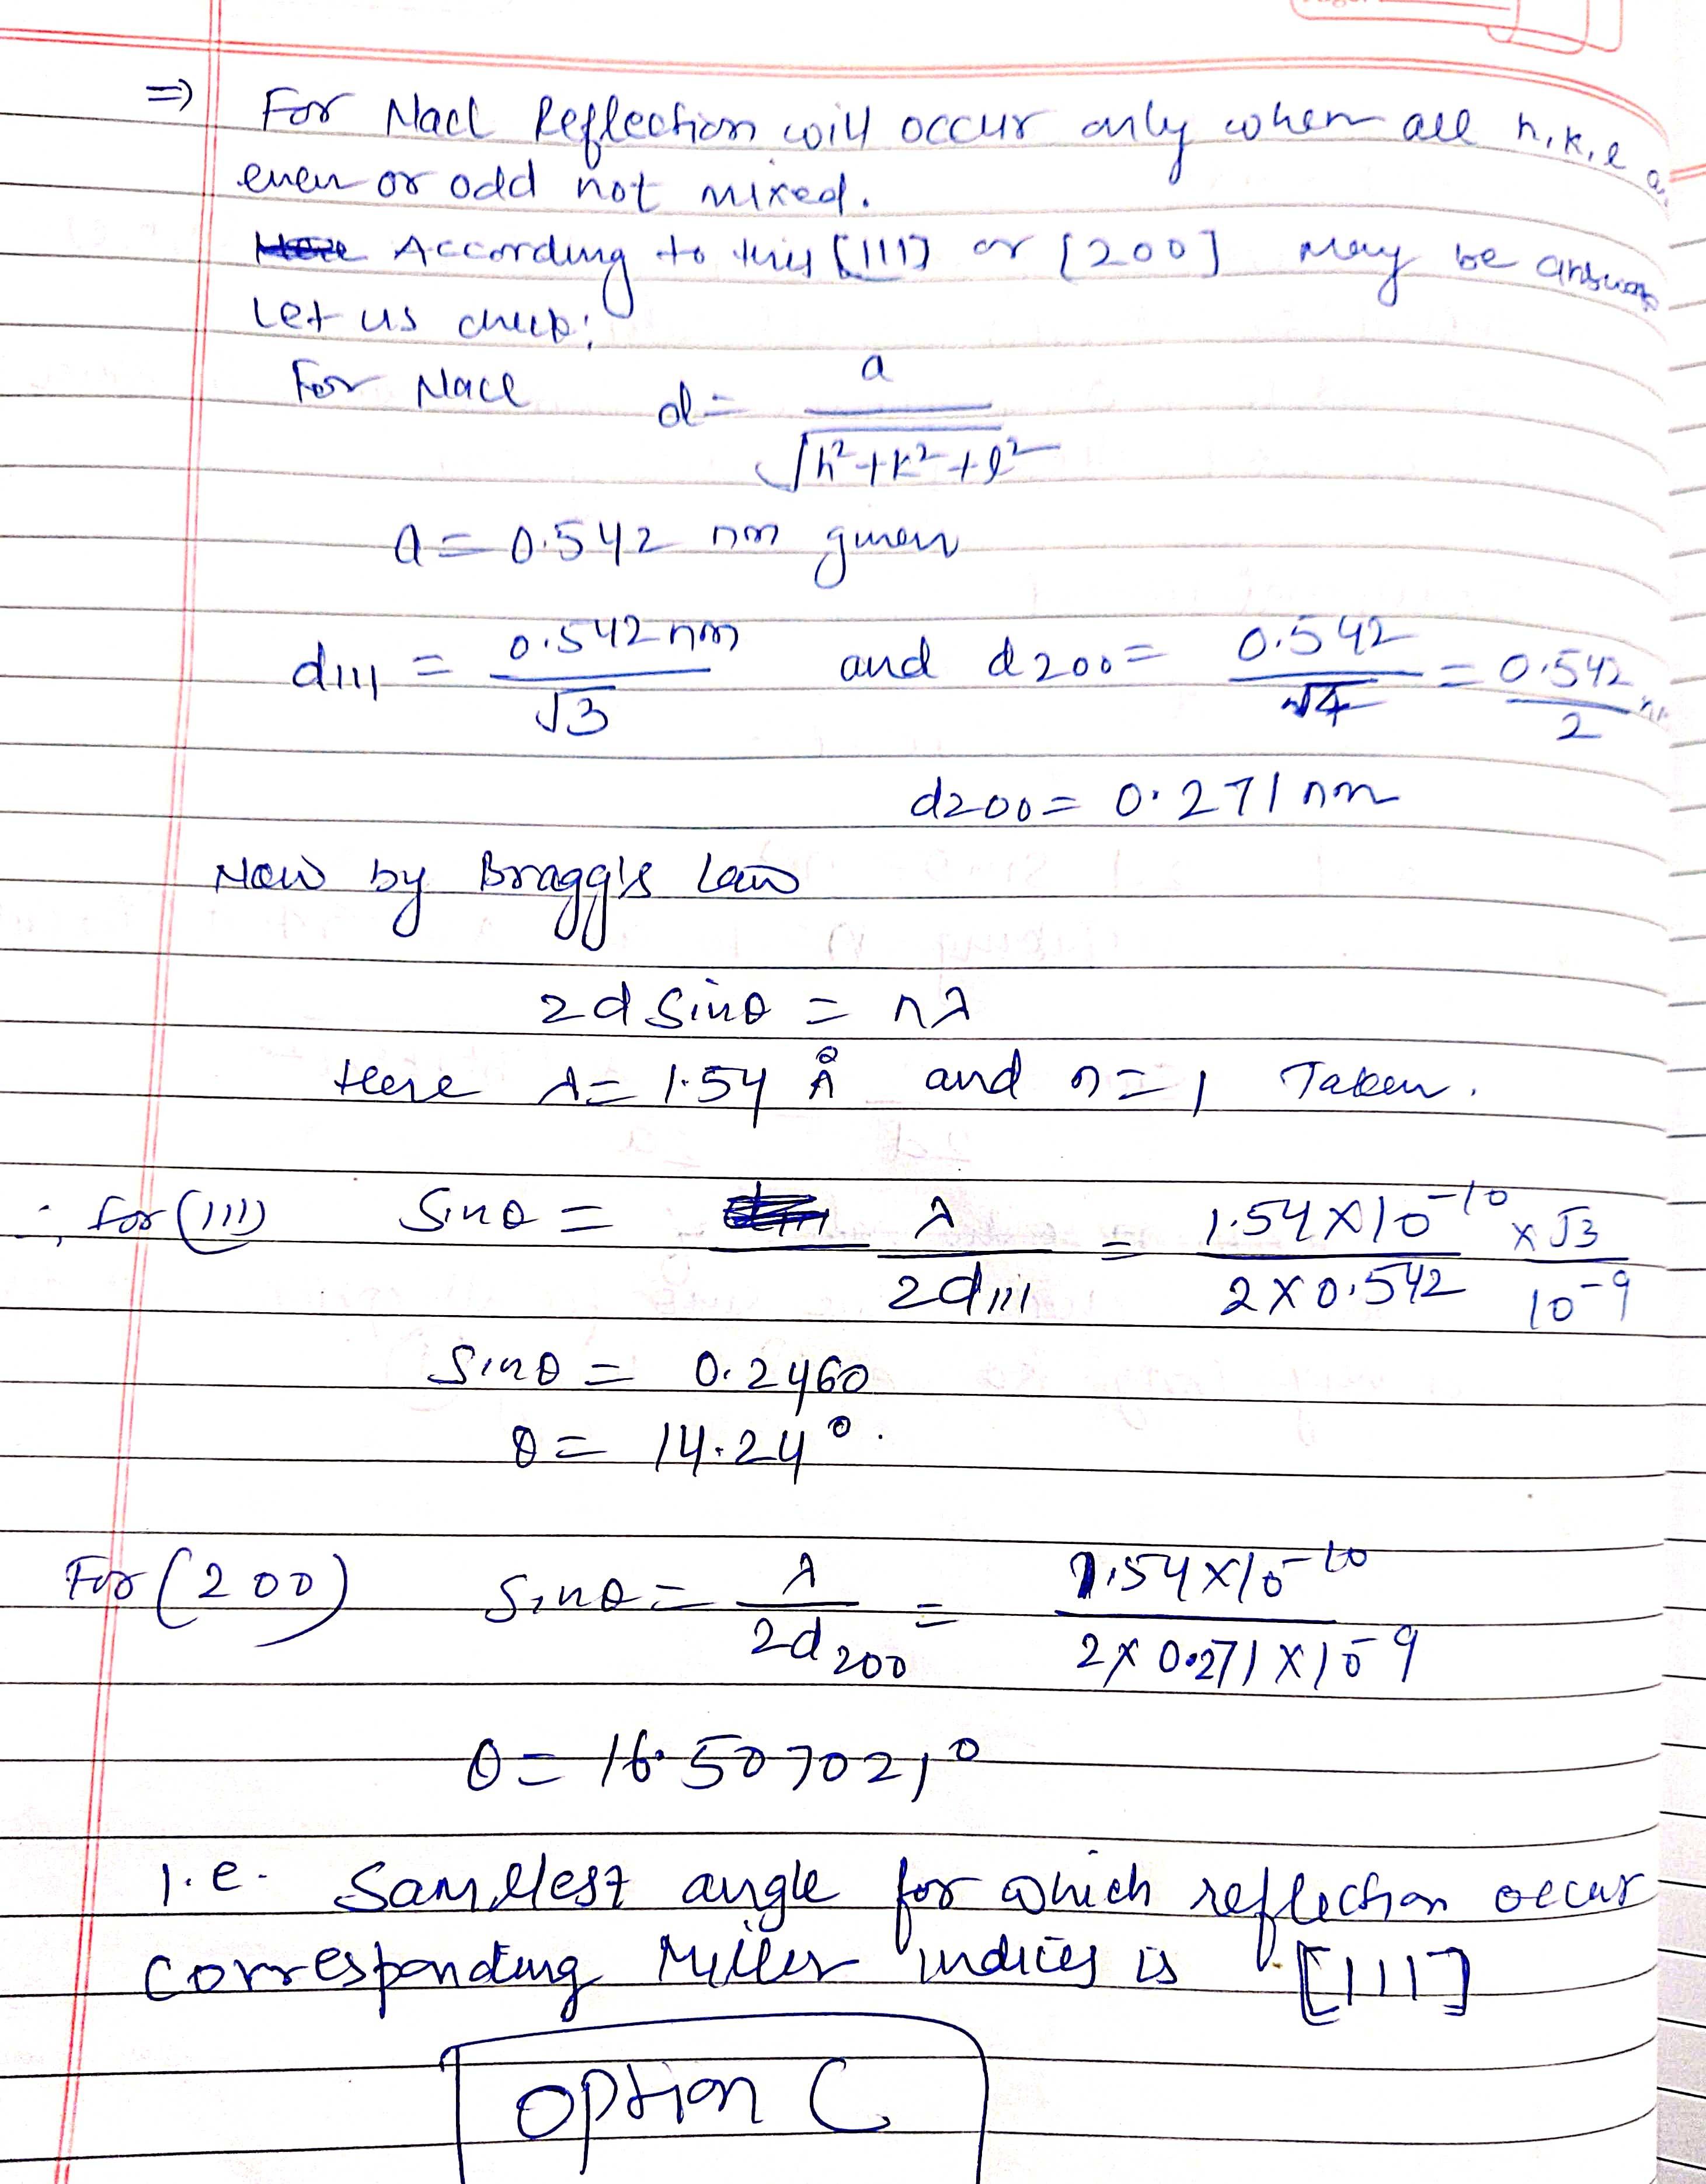 ⇒ For Nacl Reflection will occur only when all h,k,l
even or odd not mixed.
According to this [111] or [200] may be answer
Let us check:
For Nacl d = a / √h²+k²+l²
a = 0.542 nm given
d111 = 0.542 nm / √3 and d200 = 0.542 / √4 = 0.542 / 2
d200 = 0.271 nm
Now by Bragg's Law
2d Sinθ = nλ
Here λ = 1.54 Å and n = 1 Taken.
∴ for (111) Sinθ = λ / 2d111 = 1.54 X 10-10 x √3 / 2 X 0.542 10-9
Sinθ = 0.2460
θ = 14.24°.
For (200) Sinθ = λ / 2d200 = 1.54 X 10-10 / 2 X 0.271 X 10-9
θ = 16.507021°
i.e. Samllest angle for which reflection occur
corresponding Miller indicies is [111]
Option C